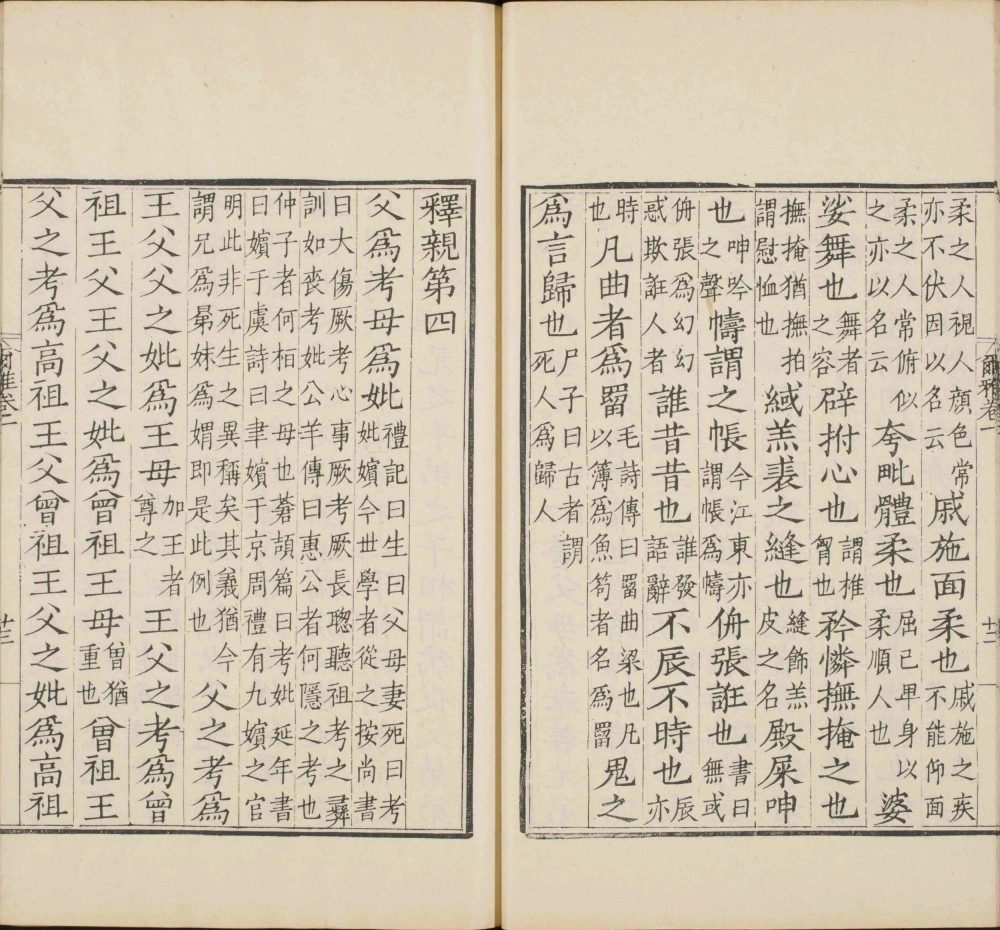 柔之人視人顔色常亦不伏因以名云戚施面柔也戚施之疾不能仰面
柔之人常俯似之亦以名云夸毗體柔也屈己卑身以柔順人也婆
娑舞也舞者之容辟拊心也謂椎胷也矜憐撫掩之也
撫掩猶撫拍謂慰恤也緎羔裘之縫也縫飾羔皮之名殿屎呻
也呻吟之聲幬謂之帳今江東亦謂帳爲幬侜張誑也書曰無或
侜張爲幻幻惑欺誑人者誰昔昔也誰發語辭不辰不時也辰亦
時也凡曲者爲罶毛詩傳曰罶曲梁也凡以簿爲魚笱者名爲罶鬼之
爲言歸也尸子曰古者謂死人爲歸人
釋親第四
父爲考母爲妣禮記曰生曰父母妻死曰考妣嬪今世學者從之按尚書
曰大傷厥考心事厥考厥長聰聽祖考之彝訓如喪考妣公羊傳曰惠公者何隱之考也
仲子者何桓之母也蒼頡篇曰考妣延年書曰嬪于虞詩曰聿嬪于京周禮有九嬪之官
明此非死生之異稱矣其義猶今謂兄爲晜妹爲媦即是此例也父之考爲
王父父之妣爲王母加王者尊之王父之考爲曾
祖王父王父之妣爲曾祖王母曾猶重也曾祖王
父之考爲高祖王父曾祖王父之妣爲高祖